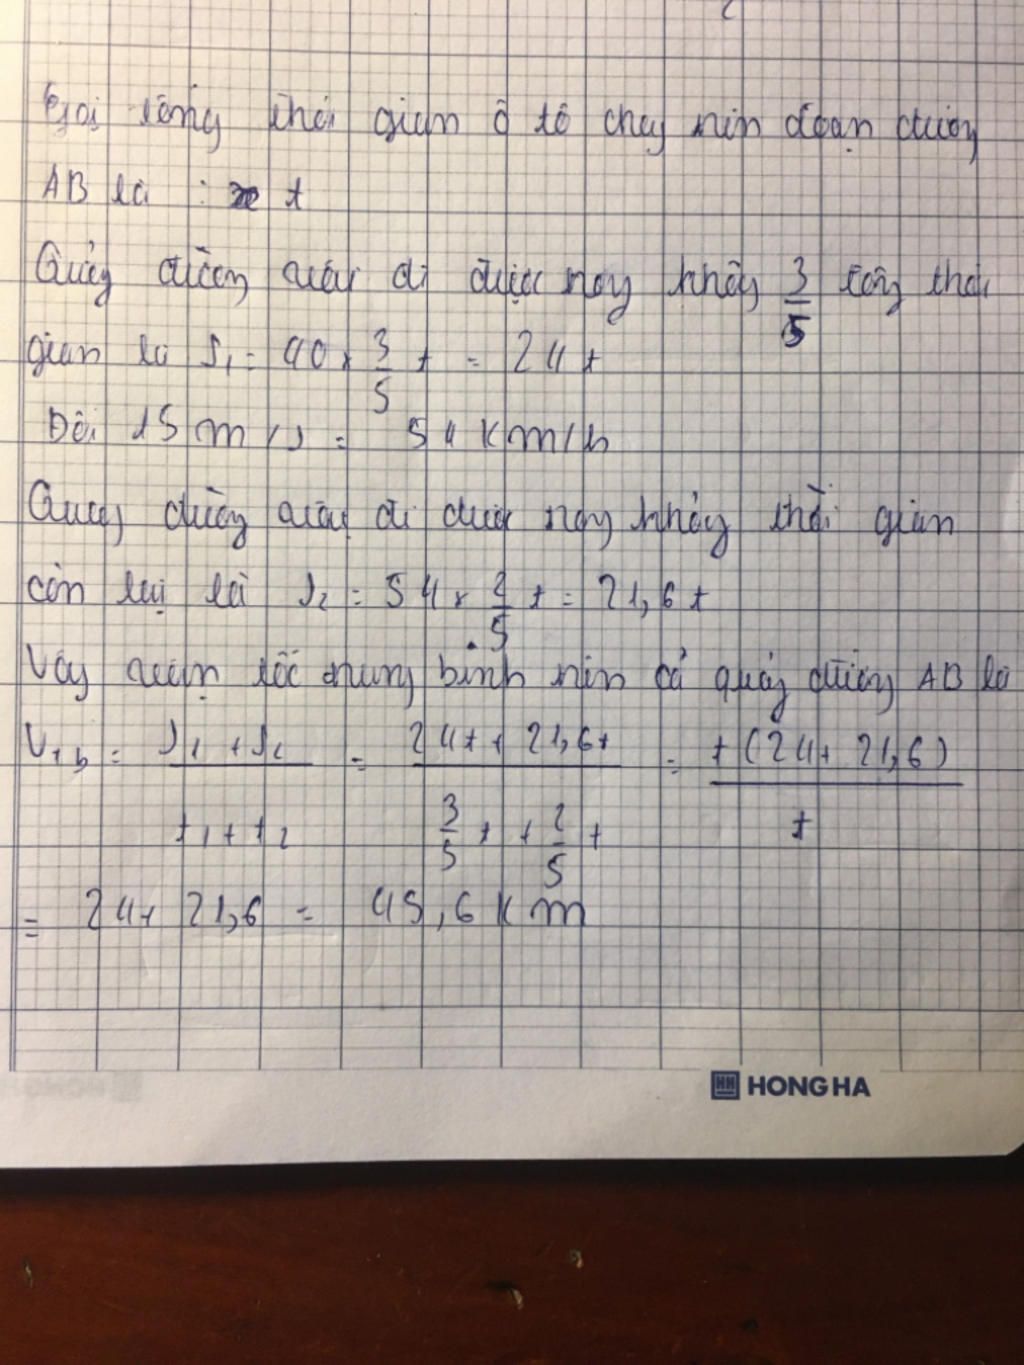 Gọi tổng thời gian ô tô chạy trên đoạn đường
AB là : t
Quãng đường xe đi được trong khoảng 3/5 tổng thời
gian là S₁ = 40 × 3/5 t = 24 t
Đổi 15 m/s = 54 km/h
Quãng đường xe đi được trong khoảng thời gian
còn lại là S₂ = 54 × 2/5 t = 21,6 t
Vậy vận tốc trung bình trên cả quãng đường AB là
Vtb = S₁ + S₂ / t₁ + t₂ = 24t + 21,6t / 3/5 t + 2/5 t = t (24 + 21,6) / t
= 24 + 21,6 = 45,6 km
HH HONG HA